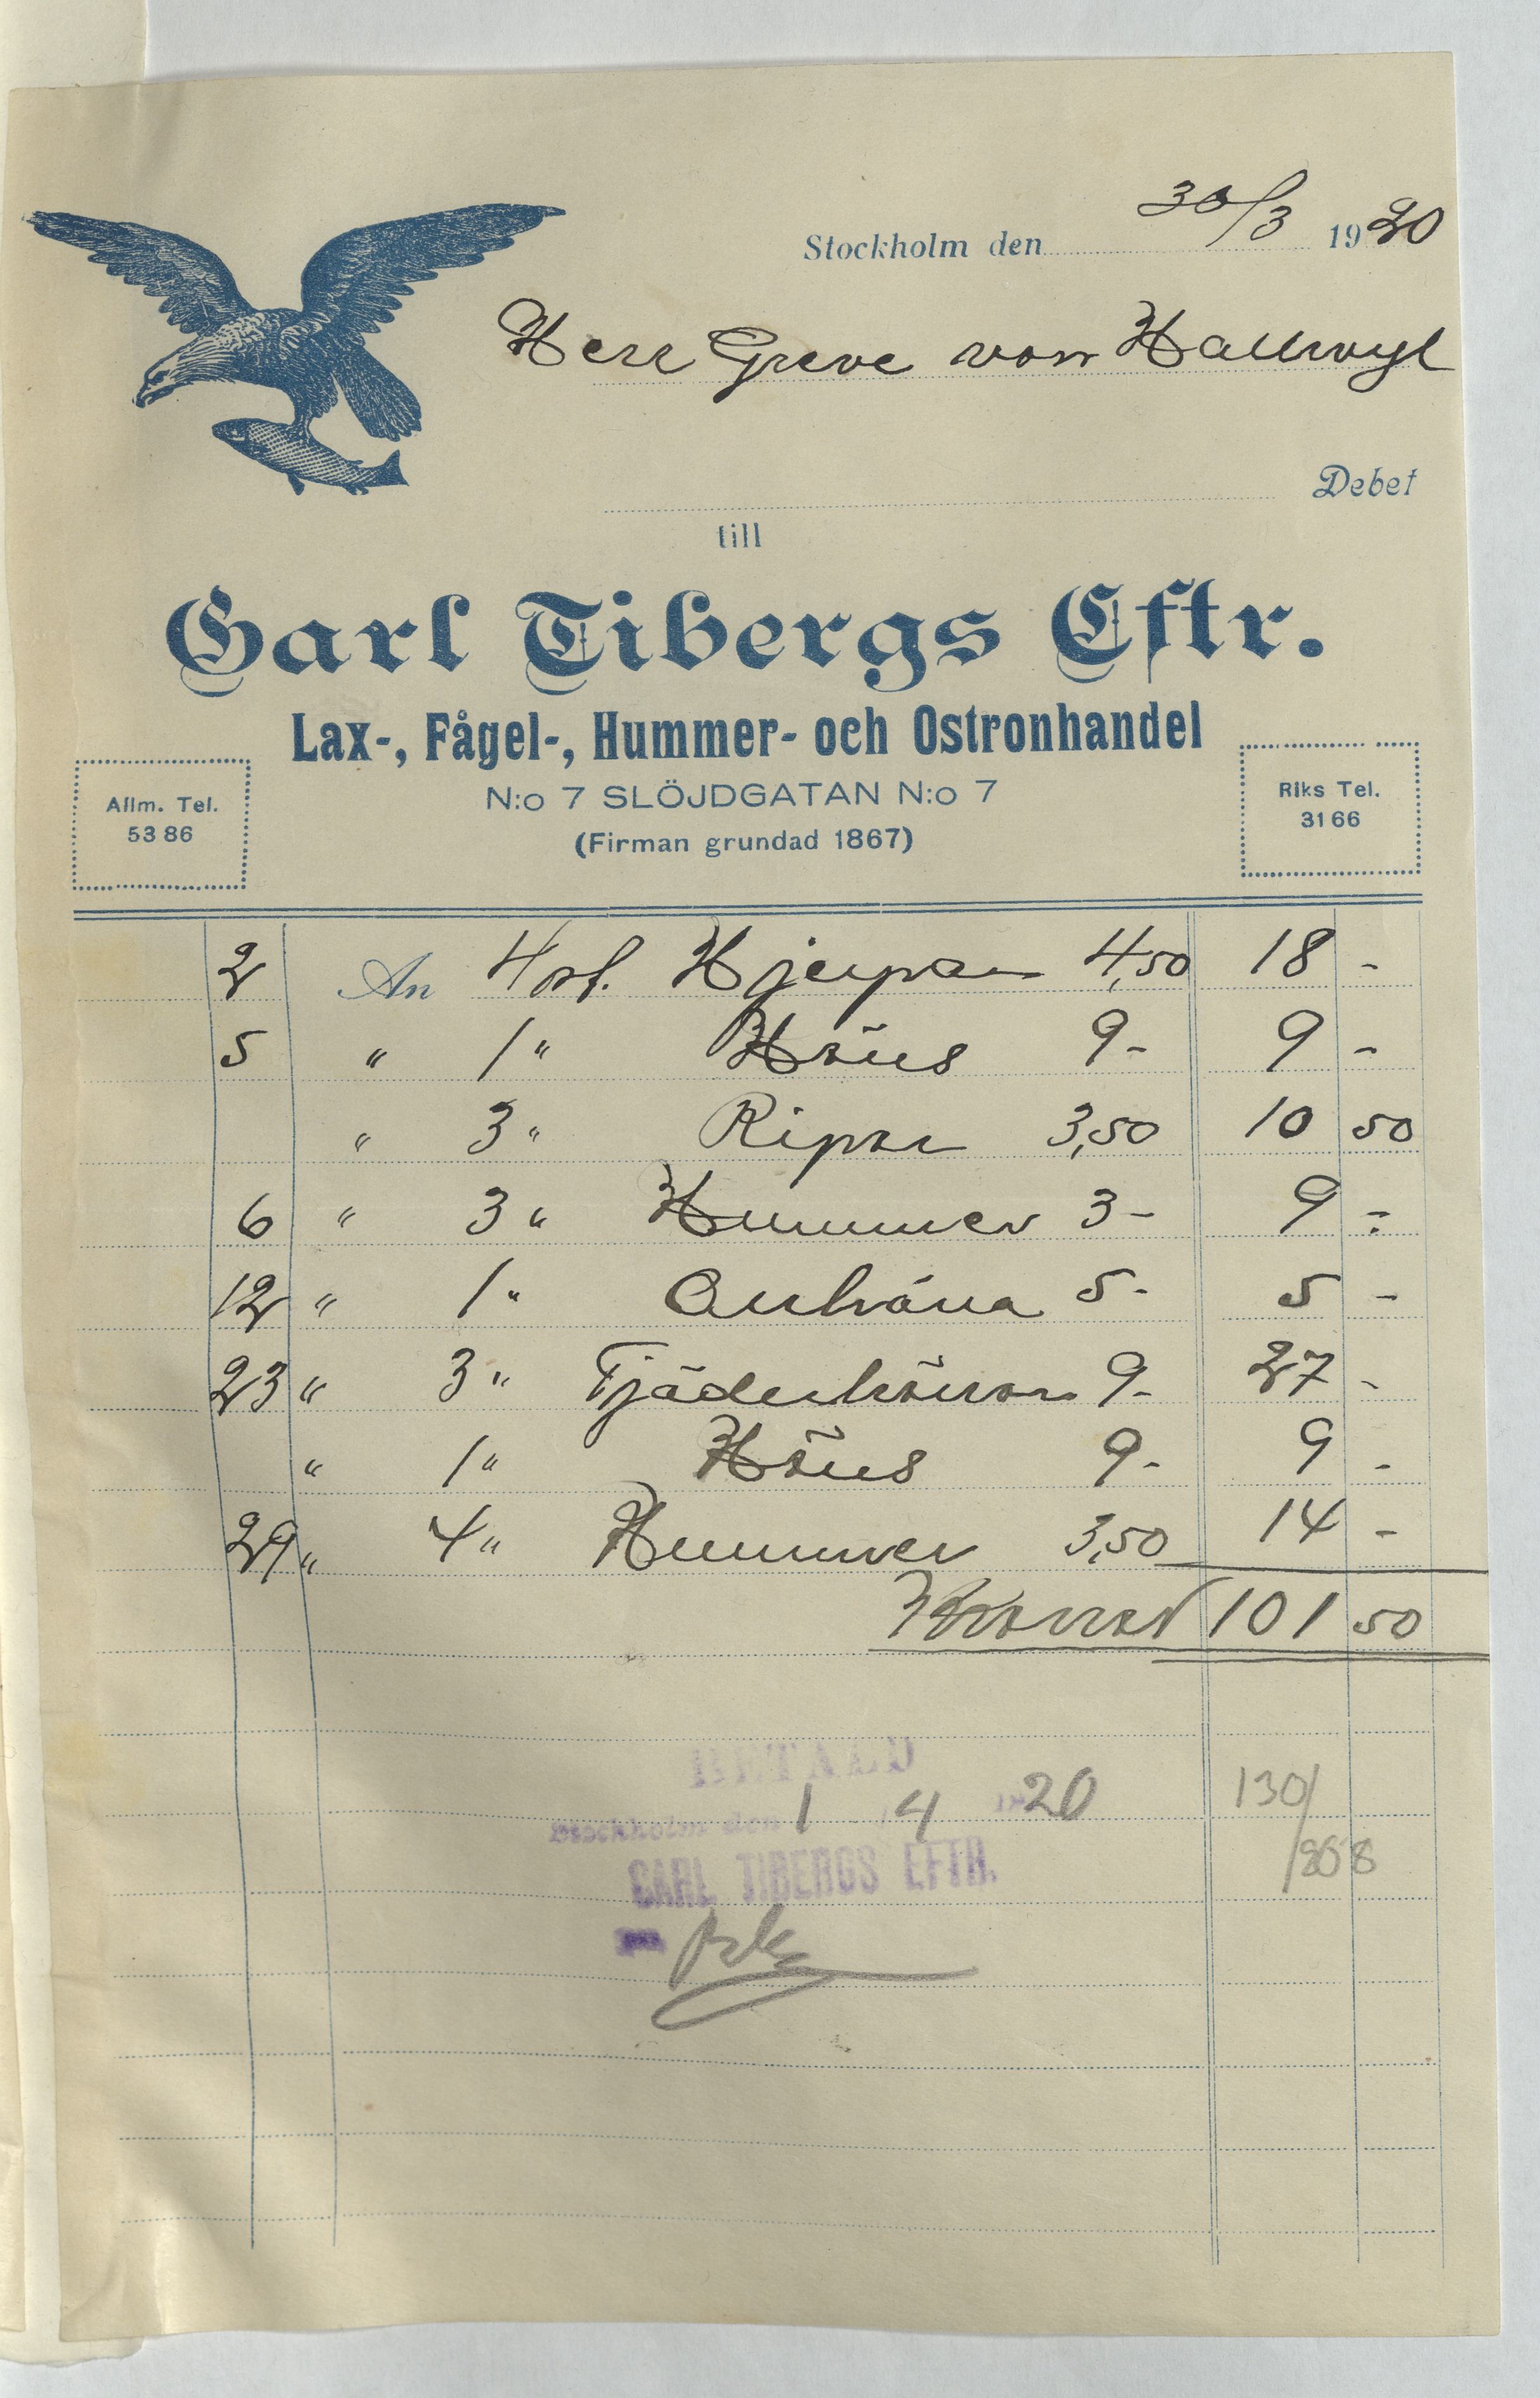 Stockholm den 30/3 1920
Herr Greve von Hallwyl
Debet
till
Carl Tibergs Eftr.
Lax-, Fågel-, Hummer- och Ostronhandel
N:o 7 SLÖJDGATAN N:o 7
(Firman grundad 1867)
Allm. Tel.
53 86
Riks Tel.
31 66
2 An 4 st. Hjerpar 4,50 18 -
5 " 1 " Höns 9- 9 -
" 3 " Ripor 3,50 10 50
6 " 3 " Hummer 3- 9 -
12 " 1 " Orrhöna 5- 5 -
23 " 3 " Tjäderhönor 9- 27 -
" 1 " Höns 9- 9 -
29 " 4 " Hummer 3,50 14 -
Kronor 101 50
BETALD
Stockholm den 1/4 1920
CARL TIBERGS EFTR.
130/